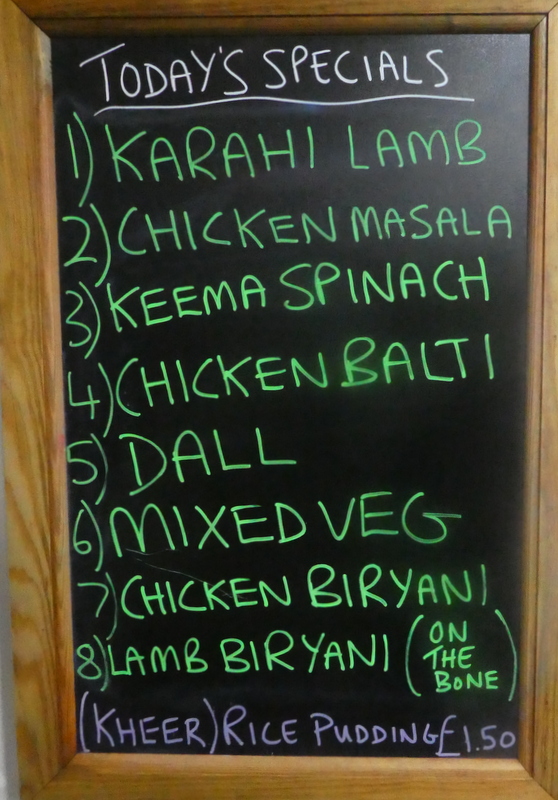 TODAY'S SPECIALS
1) KARAHI LAMB
2) CHICKEN MASALA
3) KEEMA SPINACH
4) CHICKEN BALTI
5) DALL
6) MIXED VEG
7) CHICKEN BIRYANI
8) LAMB BIRYANI (ON THE BONE)
(KHEER) RICE PUDDING £1.50